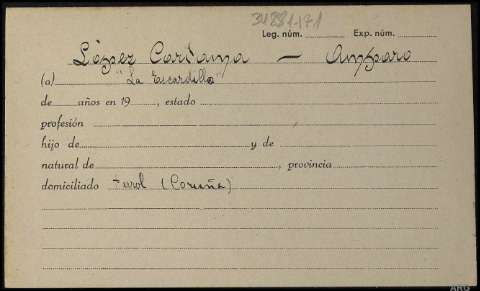 34281-171
Leg. núm. Exp. núm.
López Cardama — Amparo
(a) "La Escardilla"
de años en 19 , estado
profesión
hijo de y de
natural de , provincia
domiciliado Ferrol (Coruña)
ARG